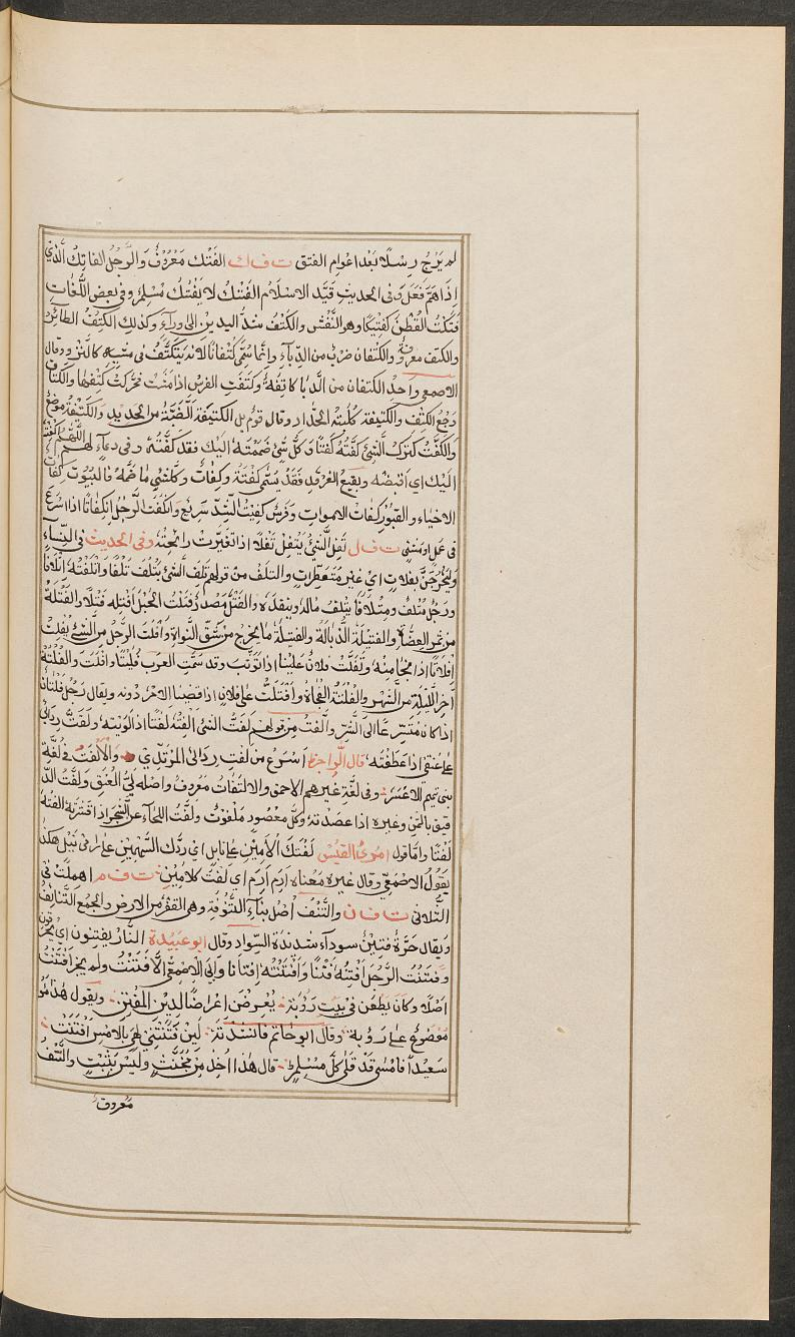 لم يَرْجُ رِسْلًا بَعْدَ اعْوام الفتق ت ف ك الفَتْك مَعْرُوفٌ وَالرَّجُل الفاتِكُ الَّذِي
اِذَا هَمَّ فَعَلَ وَفى الحديثِ قَيَّد الاسْلامُ الفَتْكُ لا يَفْتُكُ مُسْلِمٌ وفى بعض اللُّغاتِ
فَتَكْتُ القُطْنَ كفَتِيكًا وهو النَّفْش والكَتْفُ شَدُّ اليدين الى ورآءَ وكذلك الكَتِفُ الطآئر
والكتف معروفة والكُتْفان ضربٌ من الدَّبآءِ وانَّما سُمّى كُتْفانًا لانه يَتَكَتَّفُ فى مشيه كالنَّزو وقال
الاصمعى واحِدُ الكتفان من الدَّبا كاتِفَةٌ وكَتَفَتِ الفرسُ اذا مَشَتْ فحرّكَتْ كَتِفَيْها والكُتَافُ
وجُع الكَتِف والكَتِيفَة كَلْبَتَه الحَدّاد وقال قوم بل الكَتيفَة الضَّبَّة من الحديد والكَتِفَةُ موضعٌ
والكَفْتُ كَفْتُكَ الشىءَ كَفَتُّهُ كَفْتًا وكلّ شئ ضَمَمْتَه اليك فقد كَفَتَّهُ وفى دعآءٍ لهم اللَّهُمَّ اكفِتْهُ
اليك اى اقبضه وبَقيعُ الغَرْقَد فَقَدْ يُسَمّى كَفْتَة وكِفات وكلّ شئ ما ضَمَّهُ فالبُيُوتُ كِفاتُ
الاحياءِ والقبُور كِفات الاموات وفَرسٌ كَفِيتُ الشَّدِّ سَرِيع وانْكَفَتَ الرَّجُل انْكِفاتًا اذا اسْرَعَ
فى عَمَل او مَشْىٍ ت ف ل تَفِلَ الشَّئُ يَتْفَل تَفَلًا اذا تغيّرتْ رائحتُه وفى الحديث فى النِّسآءِ
وَلْيَخْرُجْنَ تفِلاتٍ اى غير مُتَعطِّراتٍ والتلَفُ من قولهم تَلِفَ الشئ يَتْلَف تَلَفًا واَتْلَفْتُه اِتْلافًا
ورَجُل مُتْلِفٌ ومِتْلَافٌ يتلف مالَه ويُنفِدُه والفَتْل مَصْدر فَتَلْتُ الحَبْلَ اَفْتِله فَتْلًا والفَتَلَة
من ثَمَر العِضَاهِ والفتيلَة الذُّبالَة والفتيلَة ما يخرج من شَقِّ النَّواةِ واَفْلَتَ الرَّجُل من الشئ يُفْلِتُ
اِفلاتًا اذا نجا منه وتَفَلَّتَ فلانٌ علينا اذا تَوَثَّبَ وقد سَمَّتِ العَرَب فُلَيْتًا واَفْلَتَ والفَلْتَة
آخر اللَّيلة من الشّهر والفَلْتَة الفُجاةُ وافْتَلَتُّ على فلانٍ اذا قضيت الامر دونه ويقال رَجُل فَلَتَانٌ
اذا كان متسرّعًا الى الشَّرِّ والَّفتُ من قولهم لَفَتُّ الشئ الفِتُه لَفْتًا اذا لوَيْتَه ولَفَتُّ رِدَائى
على عُنقِى اذا عَطَفْتُه قال الرَّاجز اَسْرَعُ من لَفْتِ رِدَائ المُرْتَدِى والاَلفَتُ فى لُغَة
بنى تَميم الاعْسَر وفى لغة غيرهم الاحمق والالتفَاتُ معروفٌ واصله لَىُّ العُنق ولَفَتُّ الد
قيق بالسّمن وغيره اذا عصَدتَه وكلّ معْصُودٍ مَلْفوتٌ ولَفَتُّ اللِّحآءَ عن الشَّجر اذا قَشَرتَه الفِتُه
لَفْتًا وامّا قول امرئ القيس لَفْتَكَ لأْمَيْنِ على نابِلِ اى رَدُّكَ السَّهمَيْنِ على رامى نَبْل هكذا
يَقُولُ الاصْمَعِىّ وقال غيره مَعْناه اِرْمِ اِرْمِ اى لَفْتَ كلامَيْن ت ف م اُهْمِلَتْ فى
الثُّلاثى ت ف ن والتَّنْف اصْل بِنآءِ التَّنُوفَة وهى القَفْر من الارضِ والجمعُ التَّنائِف
ويقال حَرَّةٌ فَتِين سودآء شديدة السّواد وقال ابو عبيدة النّارُ يفتِنون اى يُحْرَقون
وفَتَنْتُ الرَّجُل اَفْتِنُه فَتْنًا واَفْتَنْتُه اِفتانا واَبَى الاصمعِىُّ الّا فَتَنْتُ ولم يجز اَفْتَنْتُ
اَصْلًا وكان يطعن فى بيت رُؤْبَة يُعْرِضْنَ اعْرَاضًا لِدِيْنِ المُفْتِن ويقول هٰذا مو
مَوْضُوعٌ على رؤبة وقال ابو حَاتم فانشدته لَئِن فَتَنَتْنى لهى بالامس اَفْتَنَتْ
سَعيْدًا فاَمْسى قدْ قَلى كلَّ مسْلمٍ قال هٰذا اُخِذ مِن مُخَنَّثٍ وليس بِثَبْتٍ والنَّتْف
مَعروف